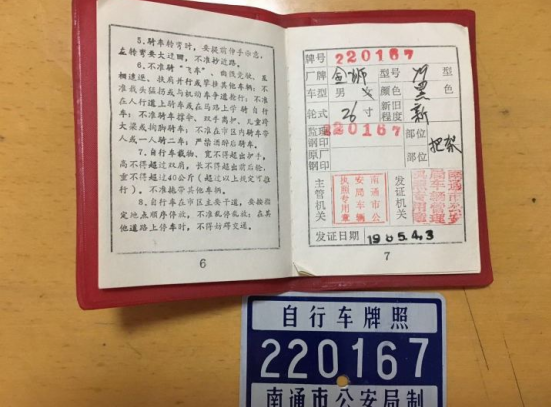 5.骑车转弯时,要提前伸手示意,
左转弯要大迂回,不准抄近路。
6.不准骑“飞车”,曲线竞驶,互
相追逐、扶肩并行或攀扶其他车辆;不
准截头猛拐或与机动车争道抢行;不准
在人行道上骑车或在马路上学骑自行
车;不准骑车撑伞、双手离把、儿童跨
大梁或掏脚骑车;不准在市区内骑车带
人或一人骑二车;严禁酒醉后骑车。
7.自行车载物,宽不得超出护手,
高不得超过双肩,长不得超出前后轮,
重不得超过40公斤(超过以上规定可推
行),不准拖带其他车辆。
8.自行车在市区主要干道,要按指
定地点顺序停放,不准乱停乱放;在其
他道路上停车时,不得妨碍交通。
6
牌号 220167
厂牌 金狮 型号 型
车型 男 女 颜色 黑 色
轮式 26 寸 新旧程度 新
监理钢印 220167 部位
原厂钢印 部位 把架
主管机关 南通市公安局车辆执照专用章 发证机关
发证日期 1985.4.3
7
自行车牌照
220167
南通市公安局制